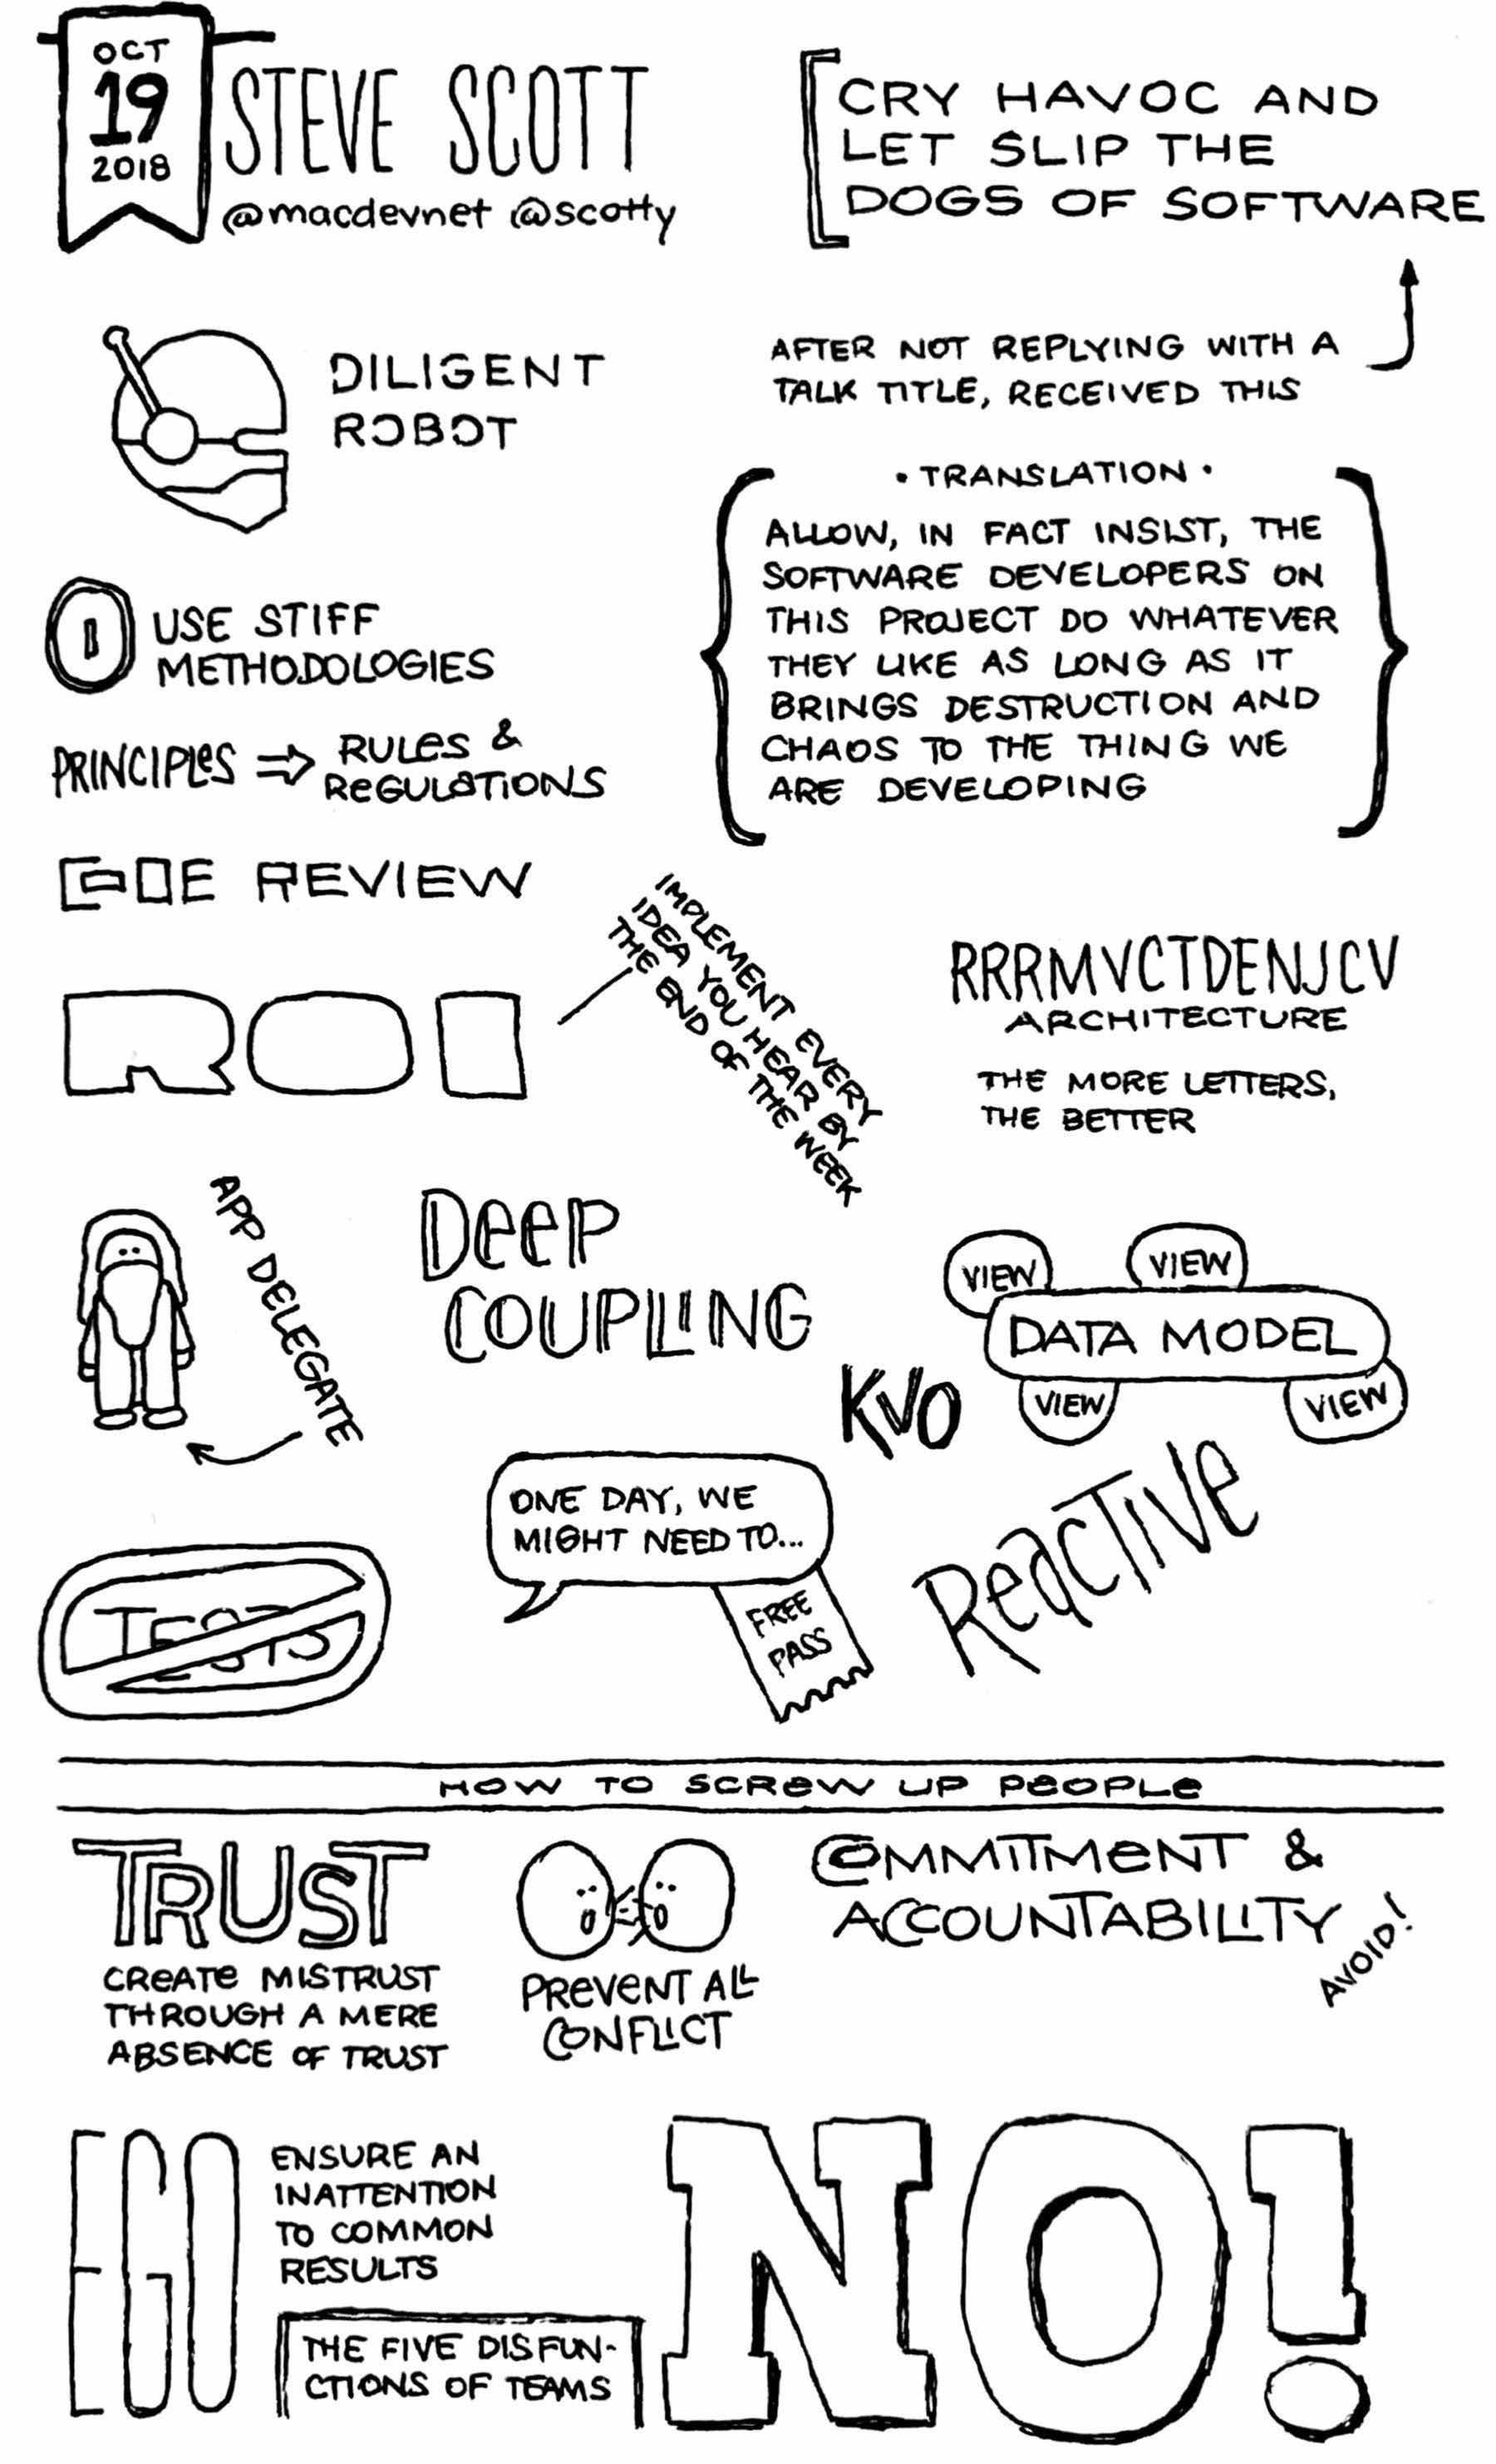 OCT
19
2018
STEVE SCOTT
@macdevnet @scotty
CRY HAVOC AND
LET SLIP THE
DOGS OF SOFTWARE
AFTER NOT REPLYING WITH A
TALK TITLE, RECEIVED THIS
DILIGENT
ROBOT
• TRANSLATION •
ALLOW, IN FACT INSIST, THE
SOFTWARE DEVELOPERS ON
THIS PROJECT DO WHATEVER
THEY LIKE AS LONG AS IT
BRINGS DESTRUCTION AND
CHAOS TO THE THING WE
ARE DEVELOPING
1 USE STIFF
METHODOLOGIES
PRINCIPLeS ⇒ RULeS &
ReGULaTiONS
CODE REVIEW
ROI
IMPLEMENT EVERY
IDEA YOU HEAR BY
THE END OF THE WEEK
RRRMVCTDENJCV
ARCHITECTURE
THE MORE LETTERS,
THE BETTER
APP DELEGATE
DeeP
COUPLING
VIEW
VIEW
DATA MODEL
VIEW
VIEW
KVO
ReacTiVe
ONE DAY, WE
MIGHT NEED TO...
FREE
PASS
TESTS
HOW TO SCReW UP PeOPLe
TRUST
CReATe MISTRUST
THROUGH A MERE
ABSENCE OF TRUST
PReVeNT ALL
CONFLICT
COMMITMeNT &
ACCOUNTABILITY
AVOID!
EGO
ENSURE AN
INATTENTION
TO COMMON
RESULTS
THE FIVE DISFUN-
CTIONS OF TEAMS
NO!